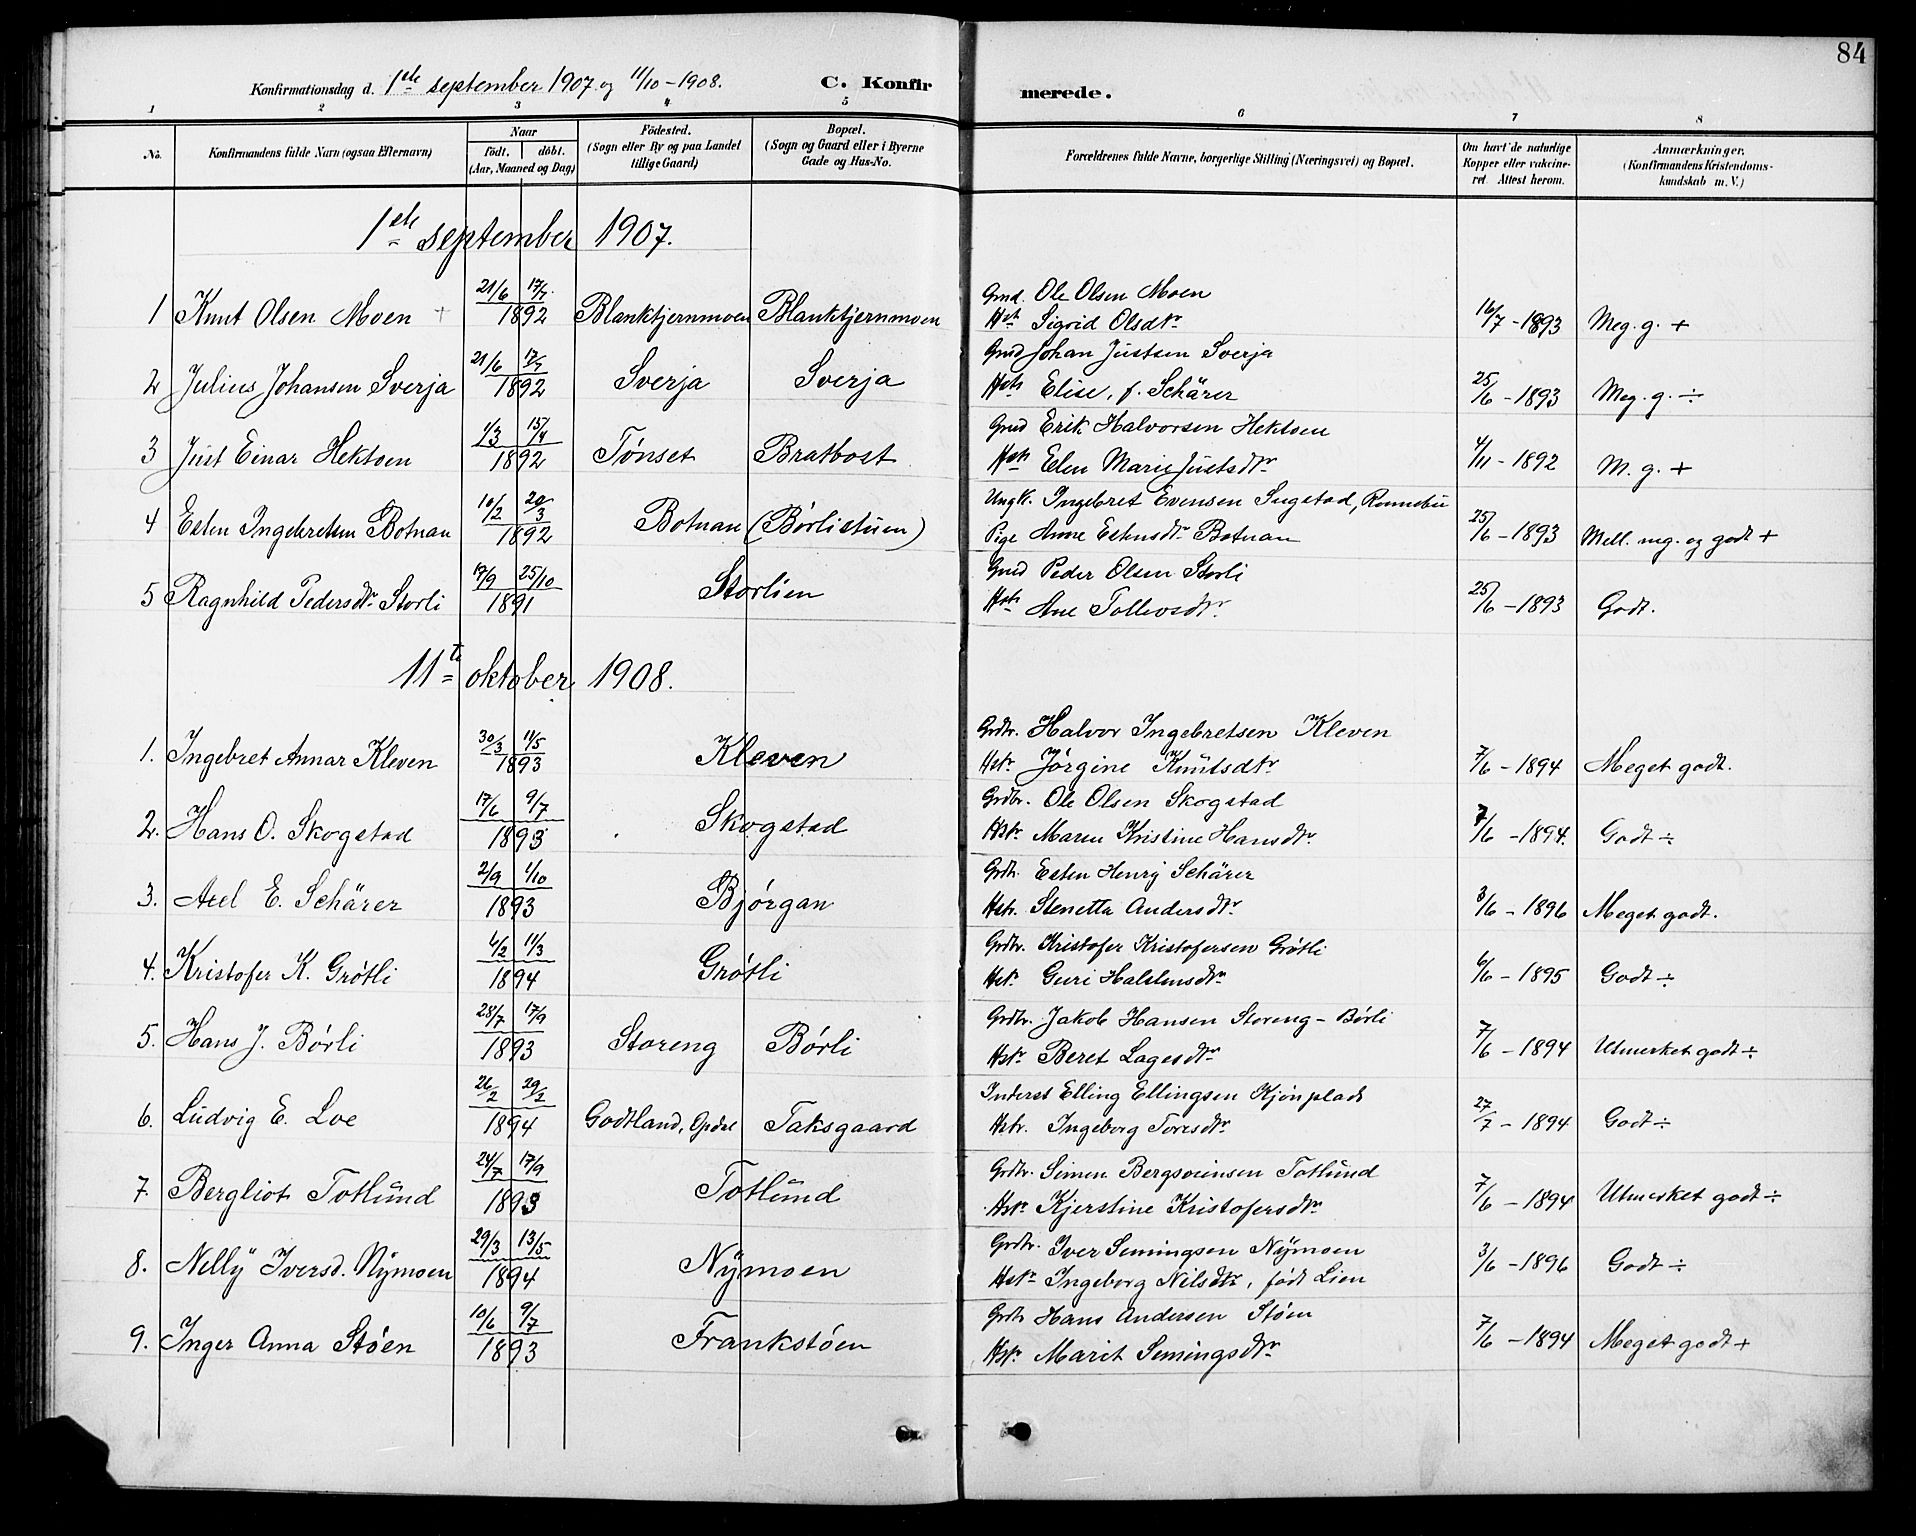 84
Konfirmationsdag d. 1ste september 1907 og 11/10-1908. C. Konfirmerede.
1 2 3 4 5 6 7 8
No. Konfirmandens fulde Navn (ogsaa Efternavn) Naar födt. döbt. (Aar, Maaned og Dag) Födested. (Sogn eller By og paa Landet tillige Gaard) Bopæl. (Sogn og Gaard eller i Byerne Gade og Hus-No. Forældrenes fulde Navne, borgerlige Stilling (Næringsvei) og Bopæl. Om havt de naturlige Kopper eller vakcineret. Attest herom. Anmærkninger. (Konfirmandens Kristendomskundskab m. V.)
1ste september 1907.
1 Knut Olsen Moen + 21/6 17/7 1892 Blanktjernmoen Blanktjernmoen Gmd. Ole Olsen Moen
Hst Sigrid Olsdtr 16/7 - 1893 Meg. g. +
2 Julius Johansen Sverja 21/6 17/7 1892 Sverja Sverja Gmd Johan Justsen Sverja
Hst Elise, f. Schärer 25/6 - 1893 Meg. g. ÷
3 Just Einar Hektoen 1/3 15/4 1892 Tønset Bratbost Gmd Erik Halvorsen Hektoen
Hst Elen Marie Justsdtr 4/11 - 1892 M. g. +
4 Esten Ingebretsen Botnan 10/2 20/3 1892 Botnan (Børlistuen) Ungk. Ingebret Evensen Sugstad, Rennebu
Pige Anne Estensdtr Botnan 25/6 - 1893 Mell. mg. og godt +
5 Ragnhild Pedersdtr Storli 17/9 25/10 1891 Storlien Gmd Peder Olsen Storli
Hst Ane Tollevsdtr. 25/6 - 1893 Godt.
11te oktober 1908.
1. Ingebret Annar Kleven 30/3 11/5 1893 Kleven Grdbr. Halvor Ingebretsen Kleven
Hstr Jørgine Knutsdtr 7/6 - 1894 Meget godt.
2. Hans O. Skogstad 17/6 9/7 1893 Skogstad Grdbr. Ole Olsen Skogstad
Hstr Maren Kristine Hansdtr. 7/6 - 1894. Godt ÷
3. Axel E. Schärer 2/9 1/10 1893 Bjørgan Grdbr. Esten Henry Schärer
Hstr. Stenetta Andersdtr 3/6 - 1896 Meget godt.
4. Kristofer K. Grøtli 6/2 11/3 1894 Grøtli Grdbr. Kristofer Kristofersen Grøtli
Hstr Guri Halstensdtr 6/6 - 1895 Godt ÷
5. Hans J. Børli 28/7 17/9 1893 Storeng Børli Grdbr. Jakob Hansen Storeng - Børli
Hstr Beret Lagesdtr 7/6 - 1894 Utmerket godt ÷
6. Ludvig E. Loe 26/2 29/2 1894 Godtland, Opdal Taksgaard Inderst Elling Ellingsen Kjönplads
Hstr. Ingeborg Toresdtr 27/7 - 1894 Godt ÷
7. Bergliot Totlund 24/7 17/9 1893 Totlund Grdbr. Simen Bergsveinsen Totlund
Hstr Kjerstine Kristofersdtr 7/6 - 1894 Utmerket godt ÷
8. Nelly Iversd. Nymoen 29/3 13/5 1894 Nymoen Grdbr. Iver Semingsen Nymoen
Hstr Ingeborg Nilsdtr, født Lien 3/6 - 1896 Godt ÷
9. Inger Anna Støen 10/6 9/7 1893 Frankstøen Grdbr Hans Andersen Støen
Hstr Marit Semingsdtr 7/6 - 1894 Meget godt +